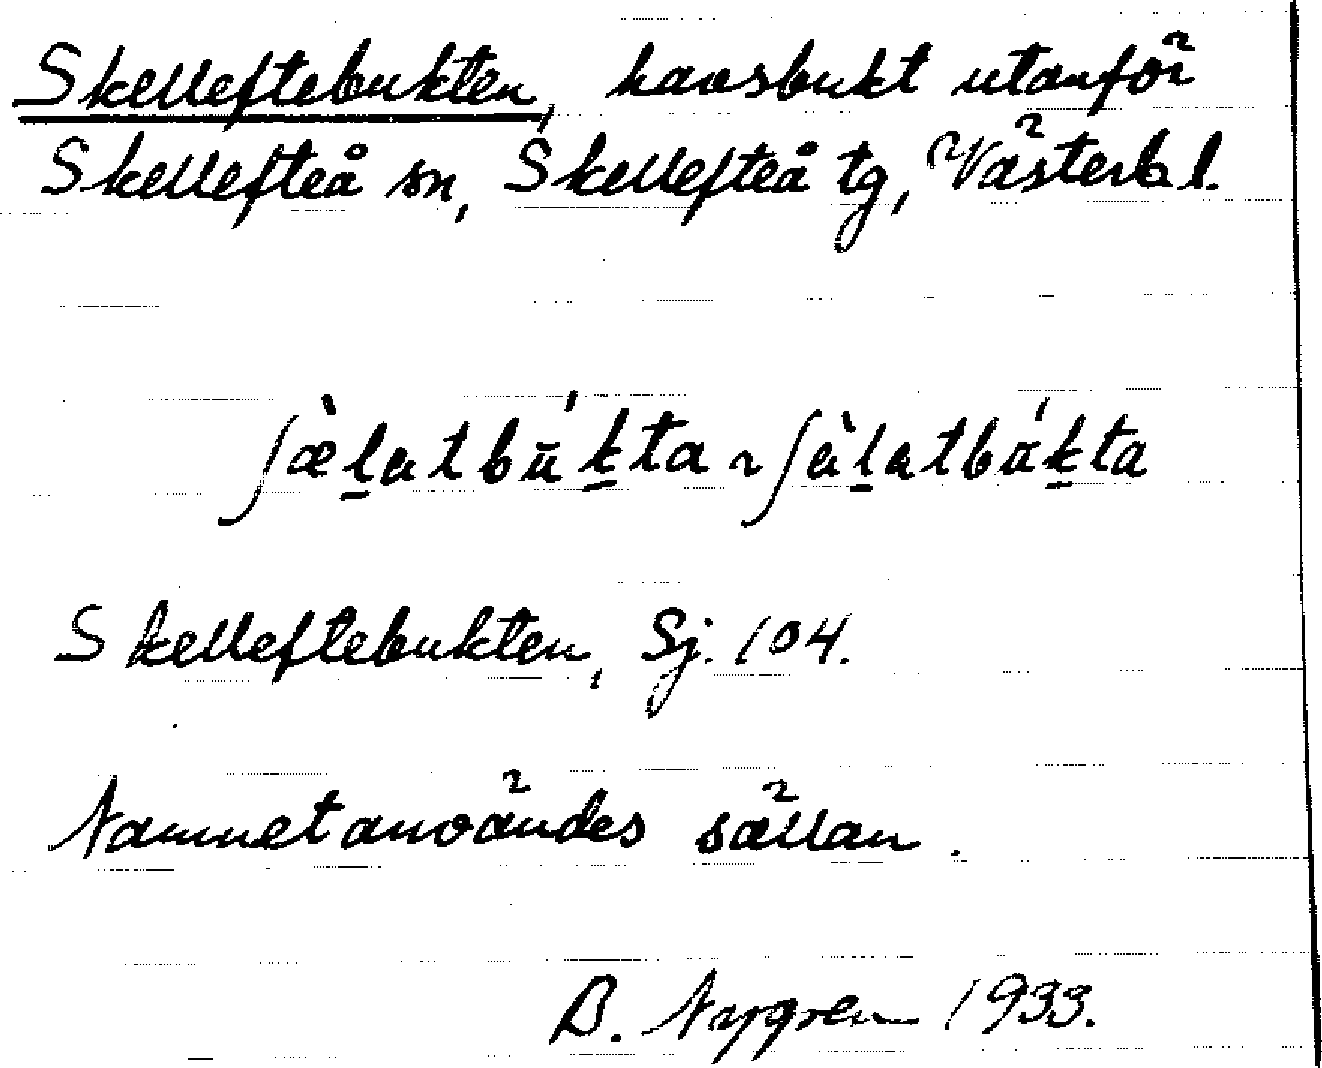 Skelleftebukten, havsbukt utanför
Skellefteå sn, Skellefteå tg, Västerb l.
ʃæ̀l̠atbū́k̠ta ~ ʃàl̠atbák̠ta
Skelleftebukten, Sj. 104.
Namnet användes sällan.
B. Nygren 1933.